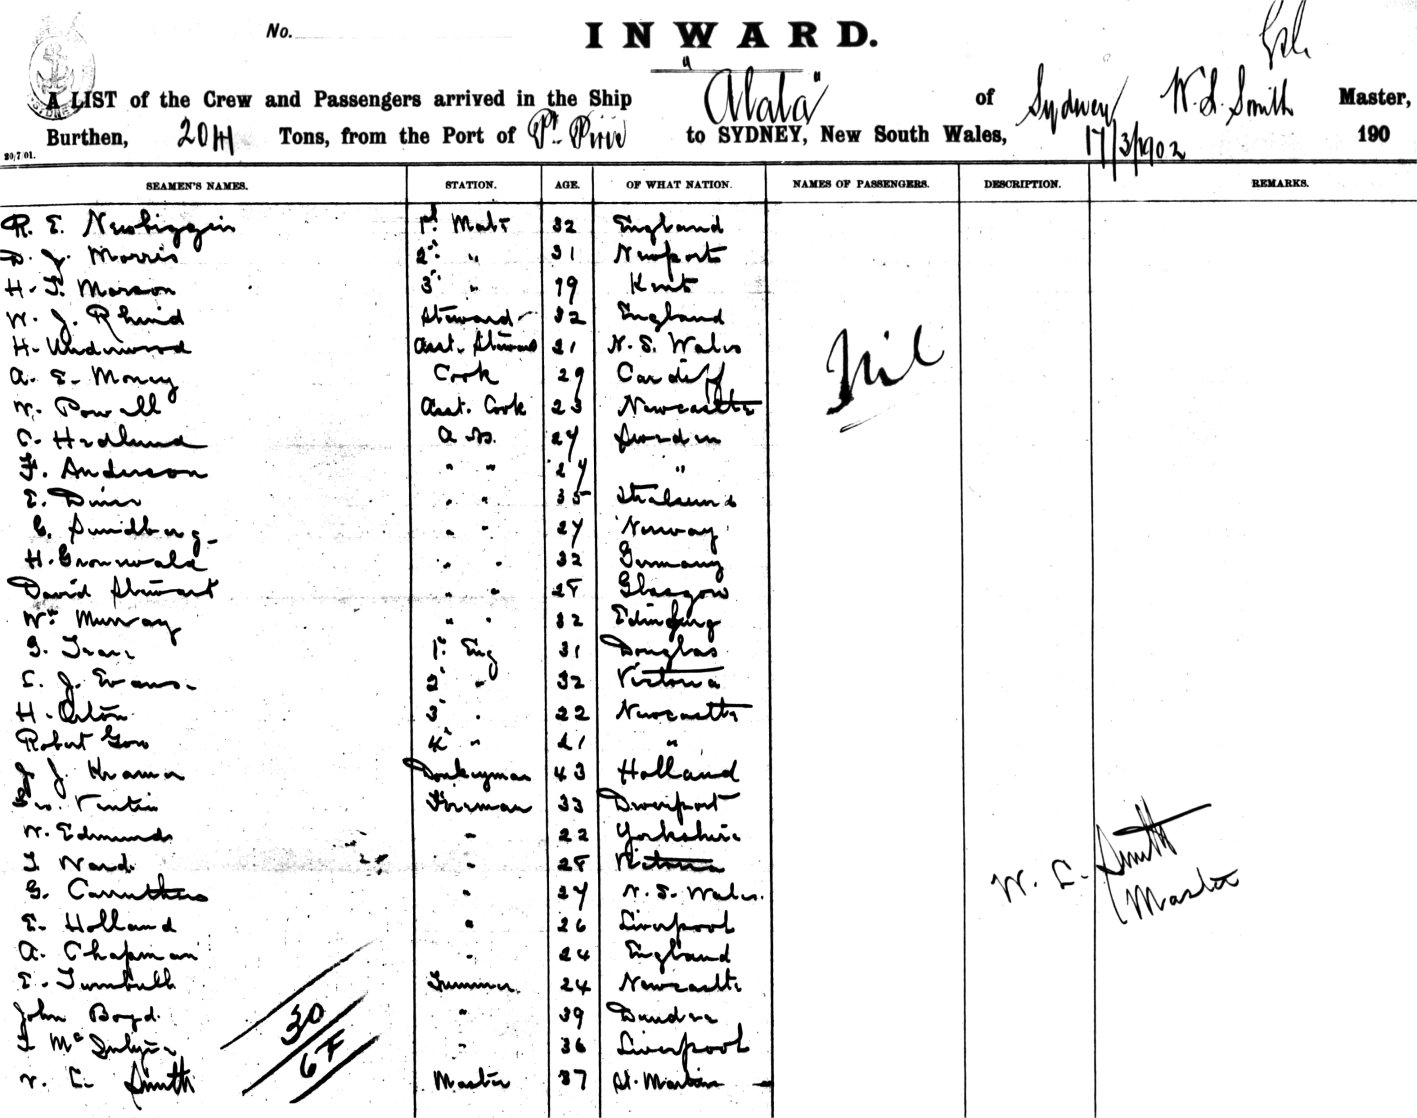 No.
INWARD.
A LIST of the Crew and Passengers arrived in the Ship "Alala" of Sydney W. L. Smith Master,
Burthen, Tons, from the Port of Pt. Pirie to SYDNEY, New South Wales, 17/3/1902 190
20/7/01.
SEAMEN'S NAMES. STATION. AGE. OF WHAT NATION. NAMES OF PASSENGERS. DESCRIPTION. REMARKS.
R. E. Newbiggin 1st Mate 32 England
D. J. Morris 2nd " 31 Newport
H. T. Marson 3rd " 19 Kent
W. J. Rhind Steward 32 England
H. Underwood Asst. Steward 21 N. S. Wales
Nil
A. E. Money Cook 29 Cardiff
W. Powell Asst. Cook 23 Newcastle
C. Hedlund A.B. 27 Sweden
F. Anderson " " 27 "
E. " " 35 Stralsund
C. Sundberg " " 27 Norway
H. Gronwald " " 32 Germany
David Stewart " " 28 Glasgow
Wm Murray " " 32 Edinburg
G. 1st Eng 31 Douglas
C. J. Evans 2nd " 32 Victoria
H. Orton 3rd " 22 Newcastle
Robert Gow 4th " 21 "
J. J. Kramer Donkeyman 43 Holland
Fireman 33 Devenport
W. Edmunds " 22 Yorkshire
T. Ward " 28 Victoria
G. Carruthers " 27 N. S. Wales
W. L. Smith
Master
E. Holland " 26 Liverpool
A. Chapman " 24 England
E. Turnbull Trimmer 24 Newcastle
John Boyd " 39 Dundee
30
T. Mc " 36 Liverpool
W. L. Smith Master 37 St. Martin